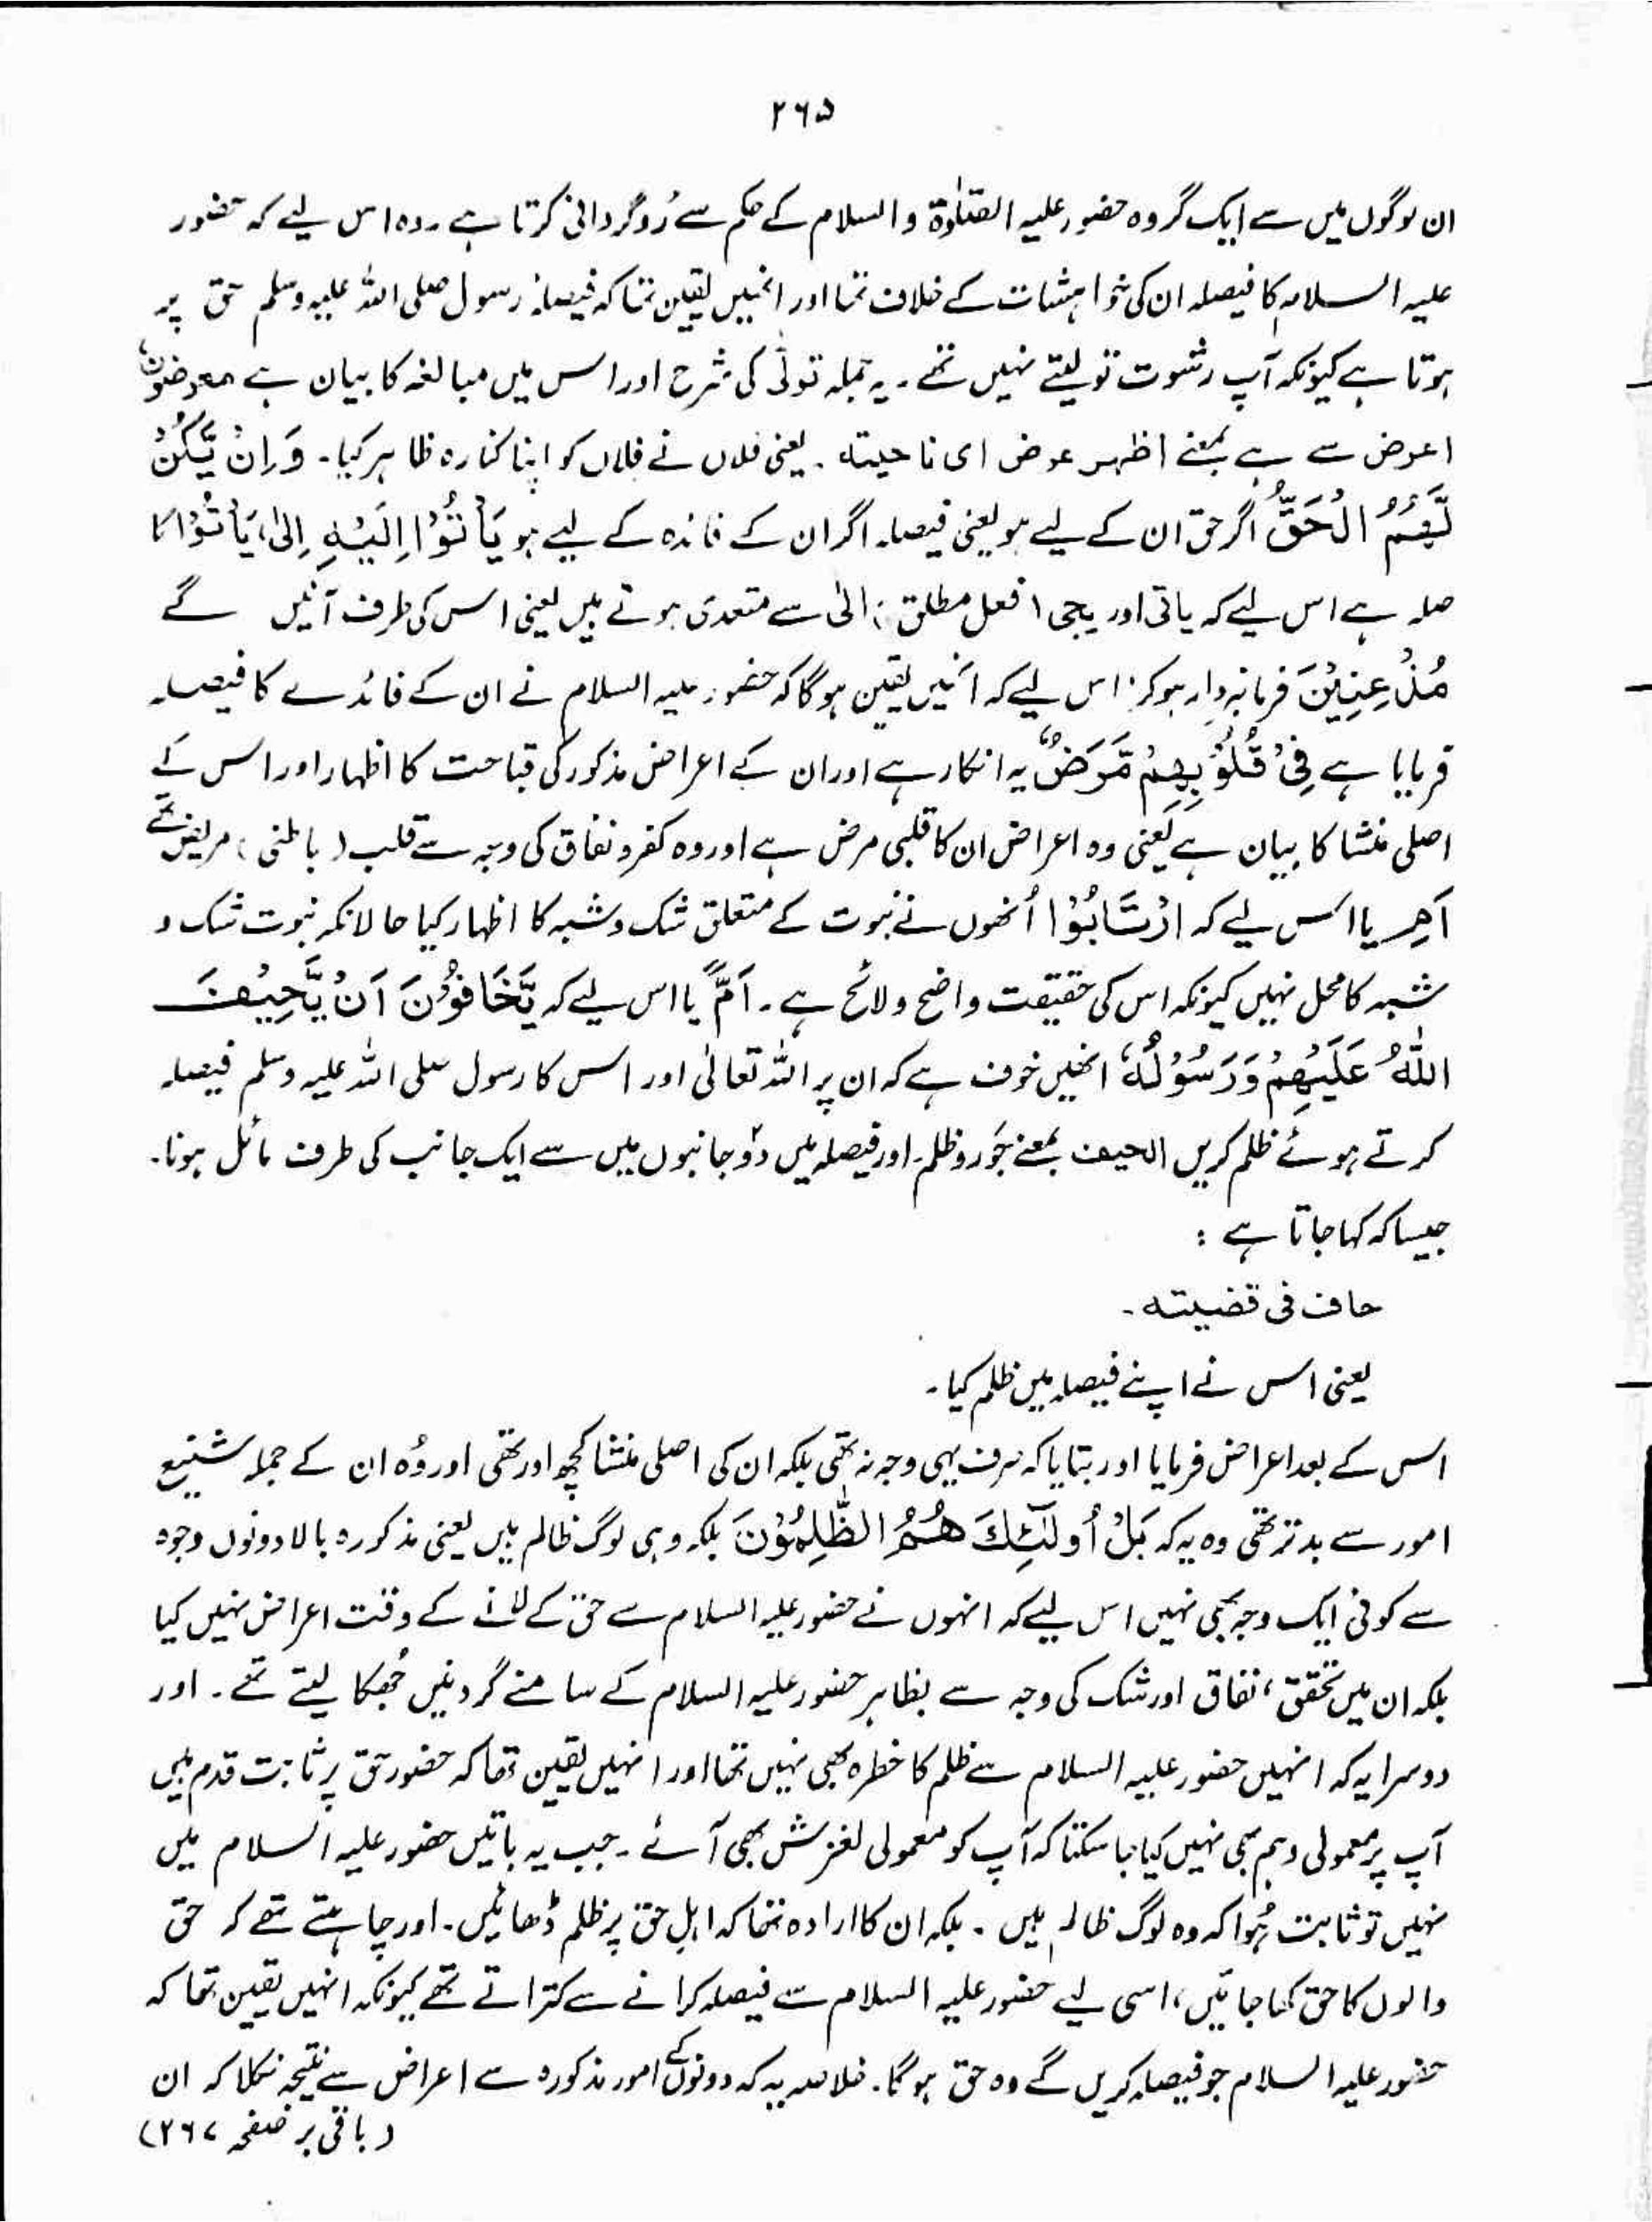 ۲۶۵
ان لوگوں میں سے ایک گروہ حضور علیہ الصلوٰۃ والسلام کے حکم سے رُوگردانی کرتا ہے۔ وہ اس لیے کہ حضور
علیہ السلام کا فیصلہ ان کی خواہشات کے خلاف تھا اور انھیں یقین تھا کہ فیصلۂ رسول صلی اللہ علیہ وسلم حق پر
ہوتا ہے کیونکہ آپ رشوت تو لیتے نہیں تھے۔ یہ جملہ تولّٰی کی شرح اور اس میں مبالغہ کا بیان ہے معرضون،
اعرض سے ہے بمعنے اظہر عرض ای ناحیتہ۔ یعنی فلاں نے فلاں کو اپنا کنارہ ظاہر کیا۔ وَاِنْ يَّكُنْ
لَّهُمُ الْحَقُّ اگر حق ان کے لیے ہو یعنی فیصلہ اگر ان کے فائدہ کے لیے ہو يَأْتُوْا اِلَيْهِ اِلیٰ، يَأْتُوْا کا
صلہ ہے اس لیے کہ یاتی اور یجی ا فعل مطلق : الیٰ سے متعدی ہوتے ہیں یعنی اس کی طرف آئیں گے
مُذْعِنِيْنَ فرمانبردار ہو کر۔ اس لیے کہ انھیں یقین ہوگا کہ حضور علیہ السلام نے ان کے فائدے کا فیصلہ
فرمایا ہے فِیْ قُلُوْبِهِمْ مَّرَضٌ یہ انکار ہے اور ان کے اعراض مذکور کی قباحت کا اظہار اور اس کے
اصلی منشا کا بیان ہے یعنی وہ اعراض ان کا قلبی مرض ہے اور وہ کفر و نفاق کی وجہ سے قلب (باطنی) مریض تھے
اَمِ یا اس لیے کہ ارْتَابُوْا اُنھوں نے نبوت کے متعلق شک و شبہ کا اظہار کیا حالانکہ نبوت شک و
شبہ کا محل نہیں کیونکہ اس کی حقیقت واضح و لائح ہے۔ اَمْ یا اس لیے کہ يَخَافُوْنَ اَنْ يَّحِيْفَ
اللّٰهُ عَلَيْهِمْ وَرَسُوْلُهٗ انھیں خوف ہے کہ ان پر اللہ تعالیٰ اور اس کا رسول صلی اللہ علیہ وسلم فیصلہ
کرتے ہوئے ظلم کریں الحیف بمعنے جَور و ظلم۔ اور فیصلہ میں دو جانبوں میں سے ایک جانب کی طرف مائل ہونا۔
جیسا کہ کہا جاتا ہے :
حاف فی قضیتہ۔
یعنی اس نے اپنے فیصلہ میں ظلم کیا۔
اس کے بعد اعراض فرمایا اور بتایا کہ صرف یہی وجہ نہ تھی بلکہ ان کی اصلی منشا کچھ اور تھی اور وُہ ان کے جملہ شنیع
امور سے بدتر تھی وہ یہ کہ بَلْ اُولٰٓئِكَ هُمُ الظّٰلِمُوْنَ بلکہ وہی لوگ ظالم ہیں یعنی مذکورہ بالا دونوں وجوہ
سے کوئی ایک وجہ بھی نہیں اس لیے کہ انہوں نے حضور علیہ السلام سے حق کے لانے کے وقت اعراض نہیں کیا
بلکہ ان میں تحقق، نفاق اور شک کی وجہ سے بظاہر حضور علیہ السلام کے سامنے گردنیں جُھکا لیتے تھے۔ اور
دوسرا یہ کہ انہیں حضور علیہ السلام سے ظلم کا خطرہ بھی نہیں تھا اور انہیں یقین تھا کہ حضور حق پر ثابت قدم ہیں
آپ پر معمولی وہم بھی نہیں کیا جا سکتا کہ آپ کو معمولی لغزش بھی آئے۔ جب یہ باتیں حضور علیہ السلام میں
نہیں تو ثابت ہُوا کہ وہ لوگ ظالم ہیں۔ بلکہ ان کا ارادہ تھا کہ اہلِ حق پر ظلم ڈھائیں۔ اور چاہتے تھے کہ حق
والوں کا حق کھا جائیں، اسی لیے حضور علیہ السلام سے فیصلہ کرانے سے کتراتے تھے کیونکہ انہیں یقین تھا کہ
حضور علیہ السلام جو فیصلہ کریں گے وہ حق ہوگا۔ خلاصہ یہ کہ دونوں کے امور مذکورہ سے اعراض سے نتیجہ نکلا کہ ان
(باقی بر صفحہ ۲۶۷)